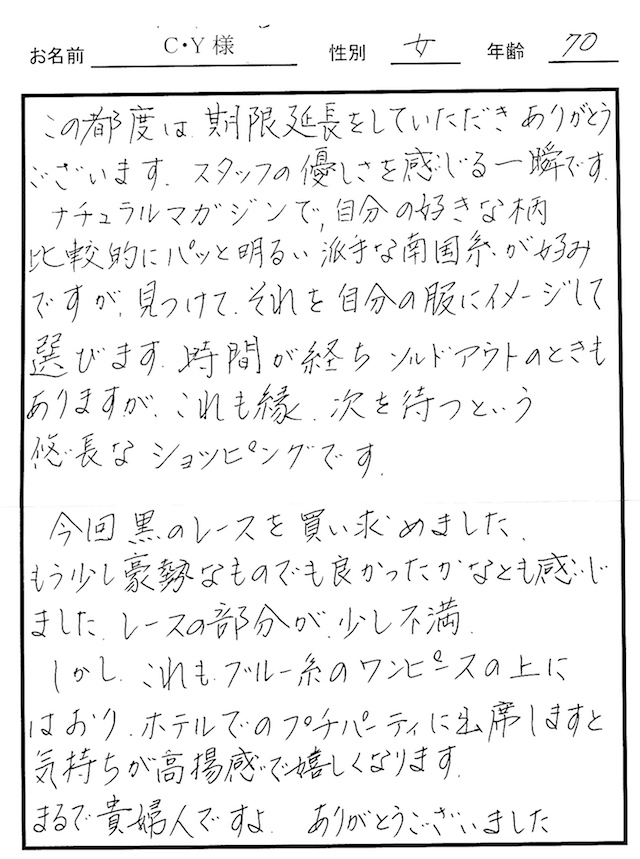 お名前 C・Y様 性別 女 年齢 70
この都度は、期限延長をしていただきありがとう
ございます。スタッフの優しさを感じる一瞬です。
ナチュラルマガジンで、自分の好きな柄
比較的にパッと明るい派手な南国糸が好み
ですが、見つけて、それを自分の服にイメージして
選びます。時間が経ちソルドアウトのときも
ありますが、これも縁、次を待つという
悠長なショッピングです。
今回黒のレースを買い求めました。
もう少し豪勢なものでも良かったかなとも感じ
ました。レースの部分が、少し不満。
しかし、これもブルー糸のワンピースの上に
はおり、ホテルでのプチパーティに出席しますと
気持ちが高揚感で嬉しくなります。
まるで貴婦人ですよ。ありがとうございました